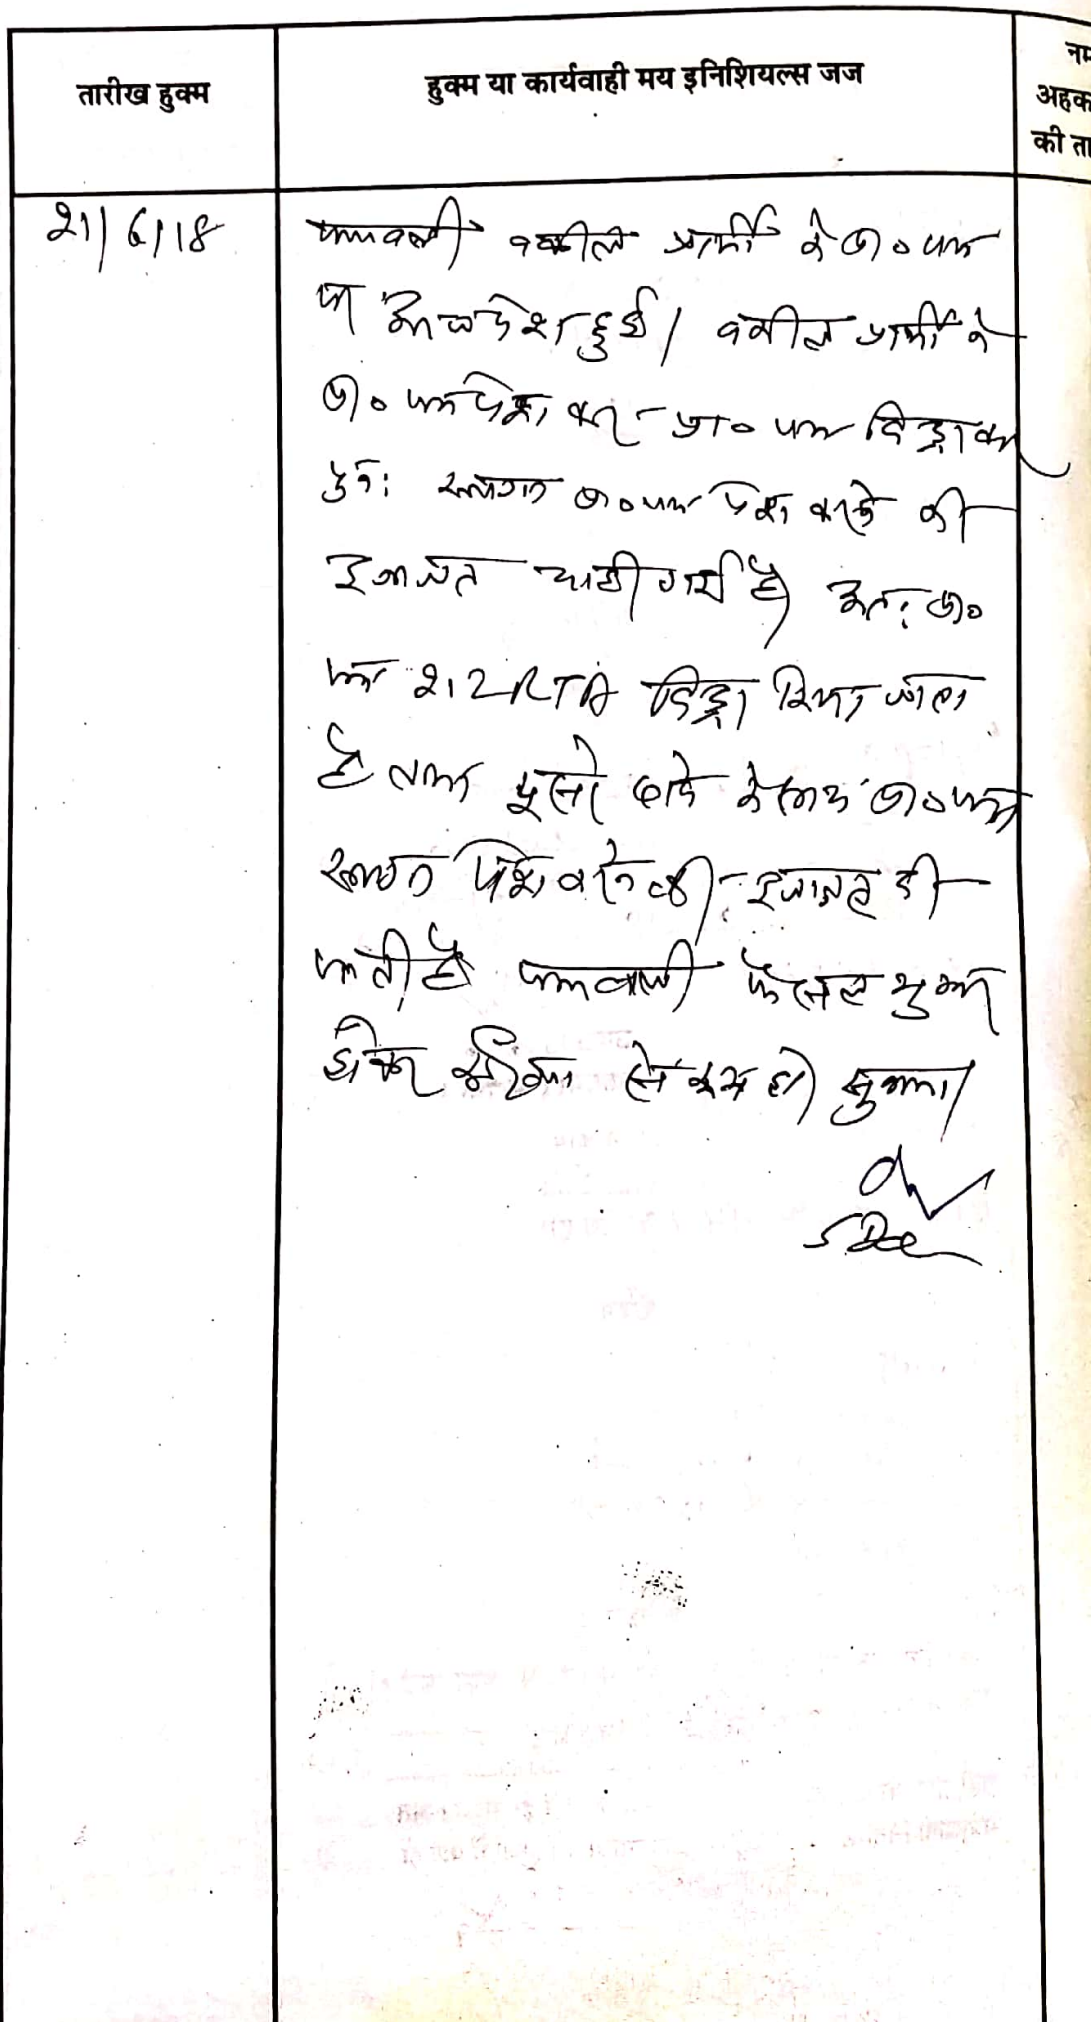 तारीख हुक्म
हुक्म या कार्यवाही मय इनिशियल्स जज
नम
अहक
की ता
21/6/18
पत्रावली वकील प्रार्थी के प्रा० पत्र
पर आज पेश हुई। वकील प्रार्थी ने
प्रा० पत्र पेश कर प्रा० पत्र विड्रा कर
पुनः स्थगन प्रा० पत्र पेश करने की
इजाजत चाही गयी है। अतः प्रा०
पत्र 212 RTA विड्रा किया जाता
है तथा दावे के साथ प्रा० पत्र
स्थगन पेश करने की इजाजत दी
जाती है पत्रावली फैसल शुमार
होकर से कम हो।
SDO